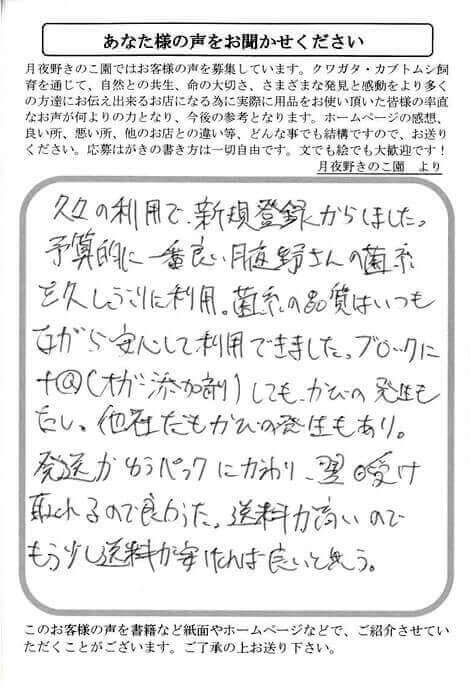 あなた様の声をお聞かせください
月夜野きのこ園ではお客様の声を募集しています。クワガタ・カブトムシ飼
育を通じて、自然との共生、命の大切さ、さまざまな発見と感動をより多く
の方達にお伝え出来るお店になる為に実際に用品をお使い頂いた皆様の率直
なお声が何よりの力となり、今後の参考となります。ホームページの感想、
良い所、悪い所、他のお店との違い等、どんな事でも結構ですので、お送り
ください。応募はがきの書き方は一切自由です。文でも絵でも大歓迎です！
月夜野きのこ園 より
久々の利用で、新規登録からしました。
予算的に一番良い月夜野さんの菌糸
を久しぶりに利用。菌糸の品質はいつも
ながら安心して利用できました。ブロックに
+@(オガ添加剤)しても、かびの発生も
ない。他社だもかびの発生もあり。
発送がゆうパックにかわり、翌日受け
取れるので良かった。送料が高いので
もう少し送料が安ければ良いと思う。
このお客様の声を書籍など紙面やホームページなどで、ご紹介させてい
ただくことがございます。ご了承の上お送り下さい。